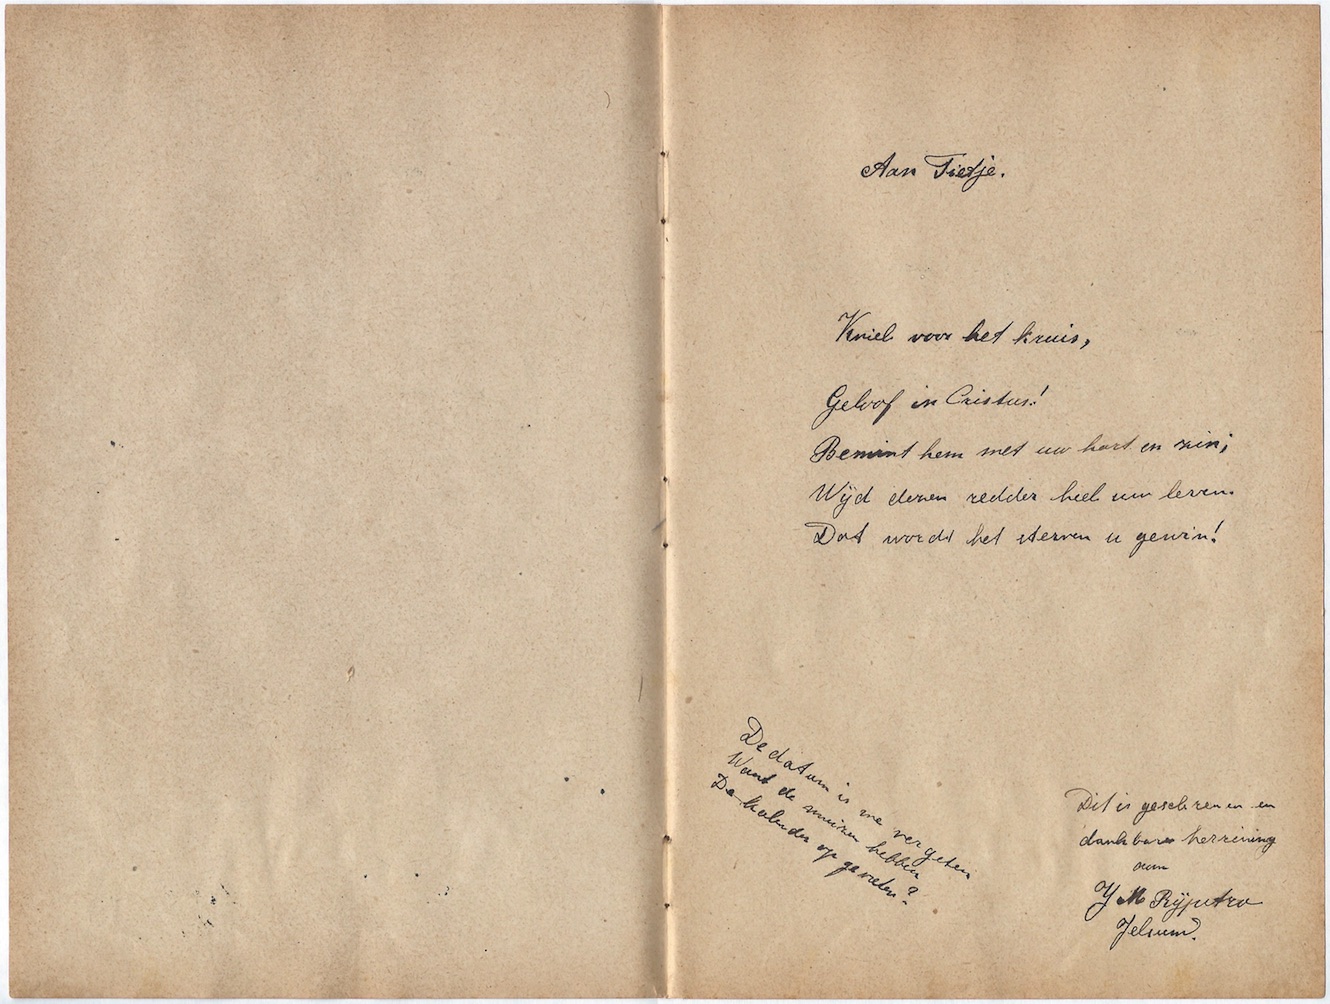 Aan Tietje.
Kniel voor het kruis,
Geloof in Cristus!
Bemint hem met uw hart en zin;
Wijd dezen redder heel uw leven.
Dat wordt het sterven u gewin!
De datum is me vergeten
Want de muizen hebben
De kalender op gevreten?
Dit is geschreven en
dankbare herrining
aan
Y M Rijpstra
Jelsum.